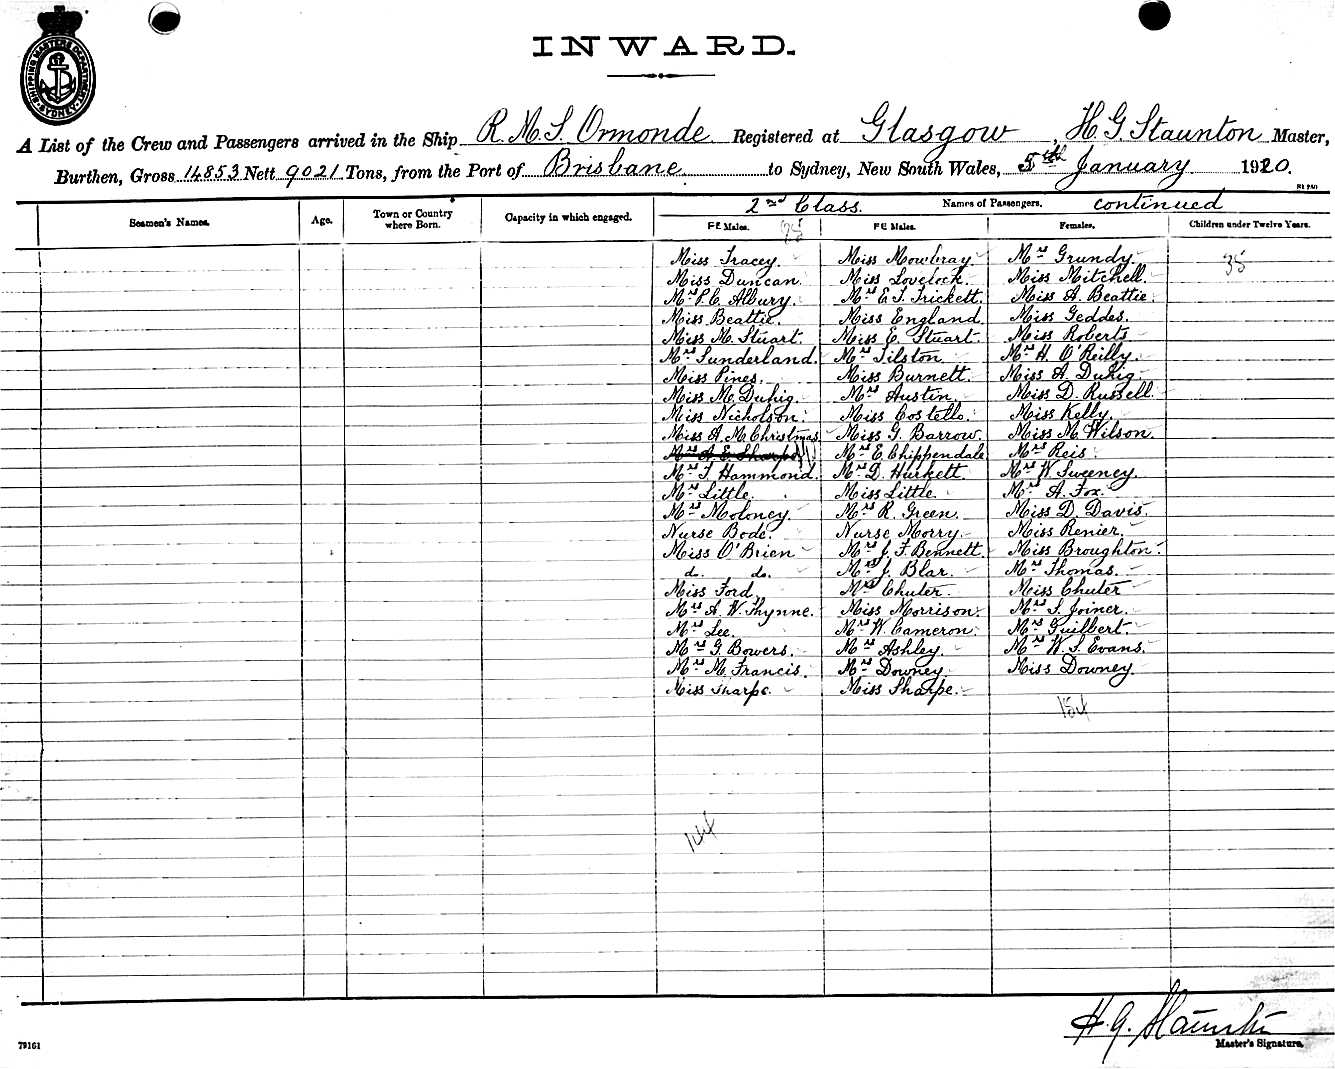 SHIPPING MASTERS DEPARTMENT SYDNEY
INWARD.
A List of the Crew and Passengers arrived in the Ship R.M.S. Ormonde Registered at Glasgow, H.G. Staunton Master,
Burthen, Gross 14853 Nett 9021 Tons, from the Port of Brisbane to Sydney, New South Wales, 5th January 1920.
2nd Class. Names of Passengers. continued
Seamen's Names. Age. Town or Country where Born. Capacity in which engaged. FE Males. FE Males. Females. Children under Twelve Years.
Miss Tracey. Miss Mowbray Mrs Grundy. 38
Miss Duncan Miss Lovelock. Miss Mitchell.
Mrs P.C. Albury. Mrs E.T. Trickett. Miss A. Beattie
Miss Beattie. Miss England. Miss Geddes.
Miss M. Stuart. Miss E. Stuart. Miss Roberts
Mrs Sunderland. Mrs Tilston. Mrs H. O'Reilly.
Miss Pines. Miss Burnett. Miss A. Duhig.
Miss M. Duhig. Mrs Austin. Miss D. Russell.
Miss Nicholson. Miss Costello. Miss Kelly.
Miss A.M. Christmas. Miss G. Barrow. Miss M. Wilson.
Mrs A.E. Sharpe Mrs E. Chippendale Mrs Reis.
Mrs T. Hammond. Mrs D. Hurkett. Mrs W. Sweeney.
Mrs Little. Miss Little. Mrs A. Fox.
Mrs Moloney. Mrs R. Green. Miss D. Davis.
Nurse Bode. Nurse Morry. Miss Renier.
Miss O'Brien Mrs J.F. Bennett. Miss Broughton.
do. do. Mrs J. Blar. Mrs Thomas.
Miss Ford. Mrs Chuter. Miss Chuter
Mrs A.W. Thynne. Miss Morrison. Mrs S. Joiner.
Mrs Lee. Mrs W. Cameron. Mrs Guilbert.
Mrs G. Bowers. Mrs Ashley. Mrs W.S. Evans.
Mrs M. Francis. Mrs Downey Miss Downey.
Miss Sharpe. Miss Sharpe.
144
H.G. Staunton
Master's Signature.
79161